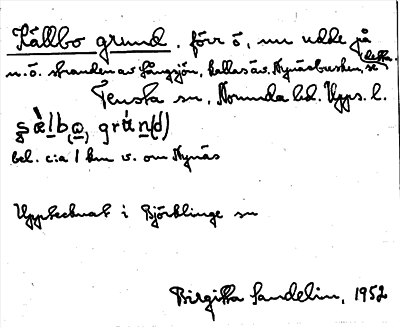 Källbo grund, förr ö, nu udde på
n.ö. stranden av Långsjön, kallas äv. Nynäsbusken, se detta.
Tensta sn, Norunda hd. Upps. l.
bel. c:a 1 km v. om Nynäs
Upptecknat i Björklinge sn
Birgitta Sandelin, 1952